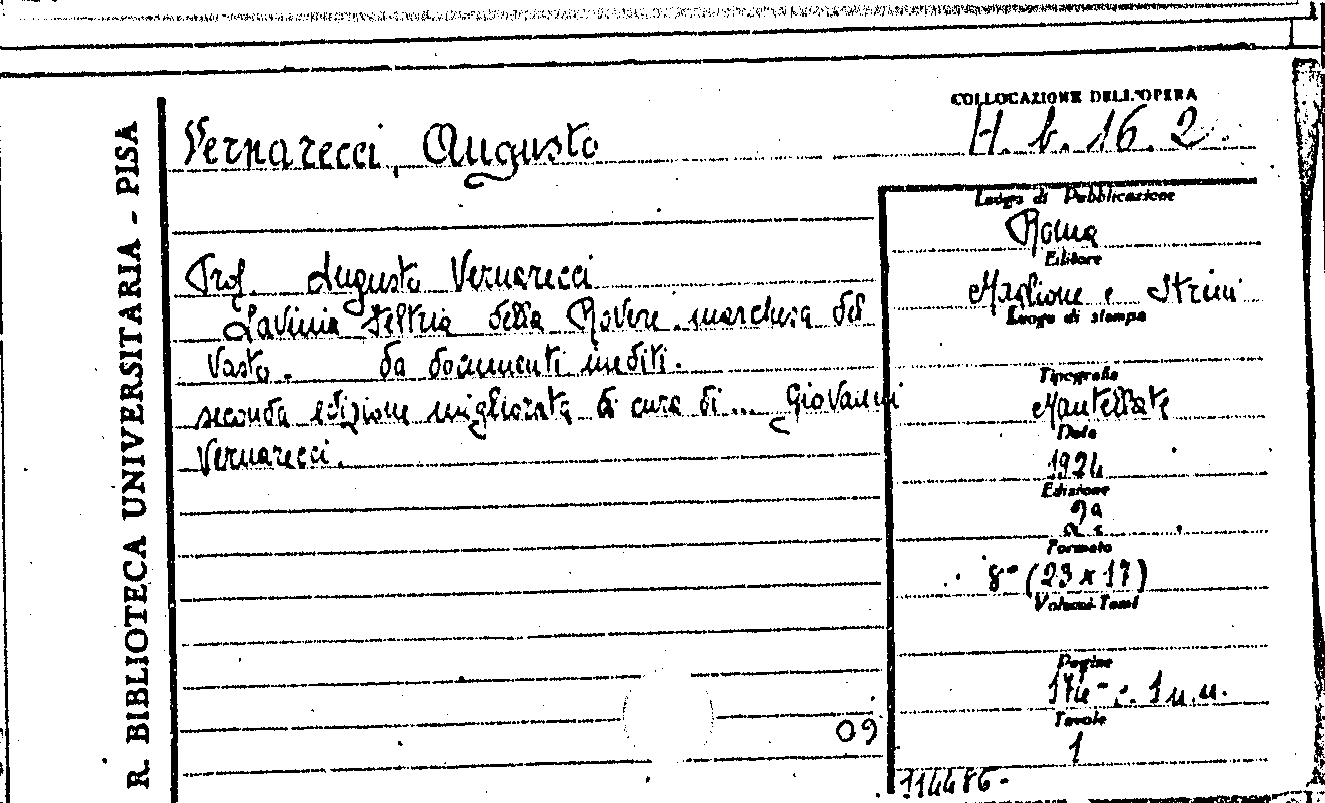 R. BIBLIOTECA UNIVERSITARIA - PISA
COLLOCAZIONE DELL'OPERA
H. b. 16. 2.
Vernarecci, Augusto
Prof. Augusto Vernarecci
Lavinia Feltria della Rovere marchesa del
Vasto. da documenti inediti.
seconda edizione migliorata di cura di ... Giovanni
Vernarecci.
09
Luogo di Pubblicazione
Roma
Editore
Maglione e Strini
Luogo di stampa
Tipografia
Mantellate
Data
1924
Edizione
2ª
Formato
8° (23 x 17)
Volumi-Tomi
Pagine
174 - c. 1 n.n.
Tavole
1
114486.